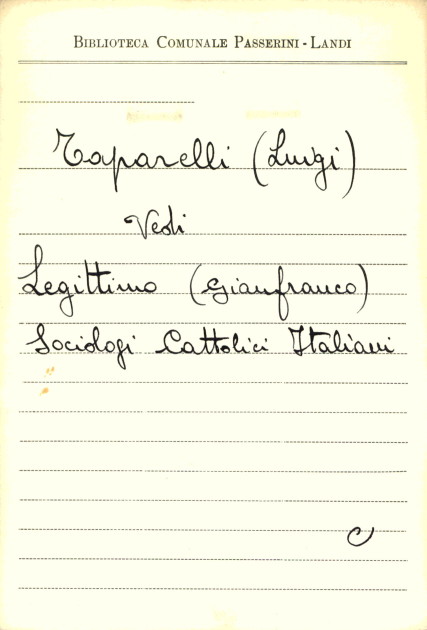 BIBLIOTECA COMUNALE PASSERINI - LANDI
Taparelli (Luigi)
Vedi
Legittimo (Gianfranco)
Sociologi Cattolici Italiani